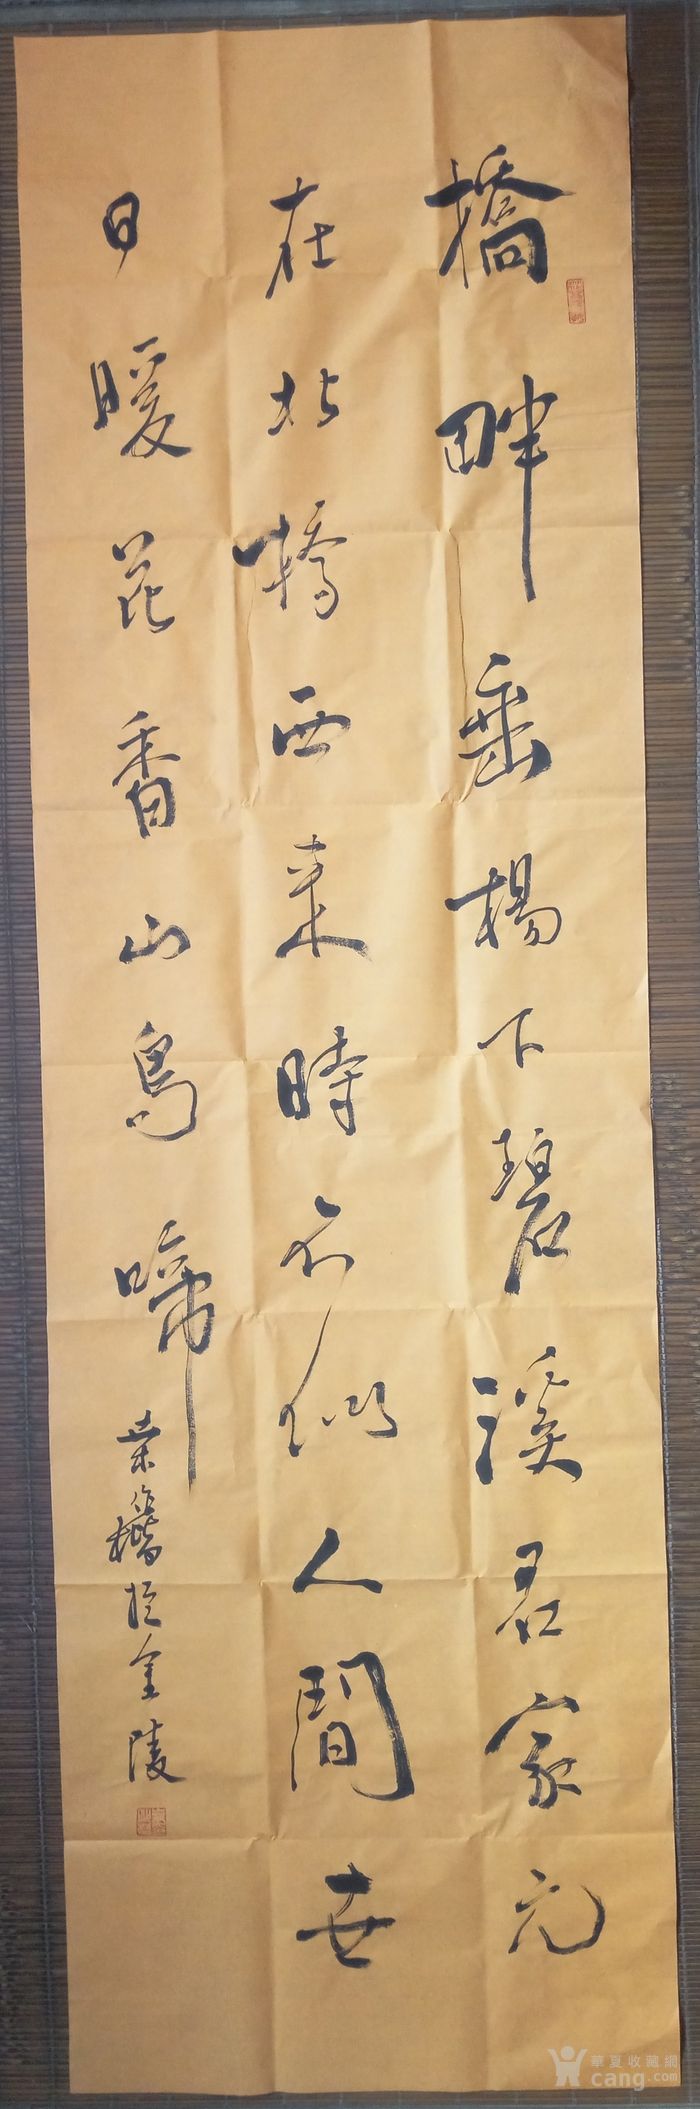 橋畔垂楊下碧溪君家元
在北橋西来時不似人間世
日暖花香山鳥啼
於金陵
華夏收藏網
cang.com